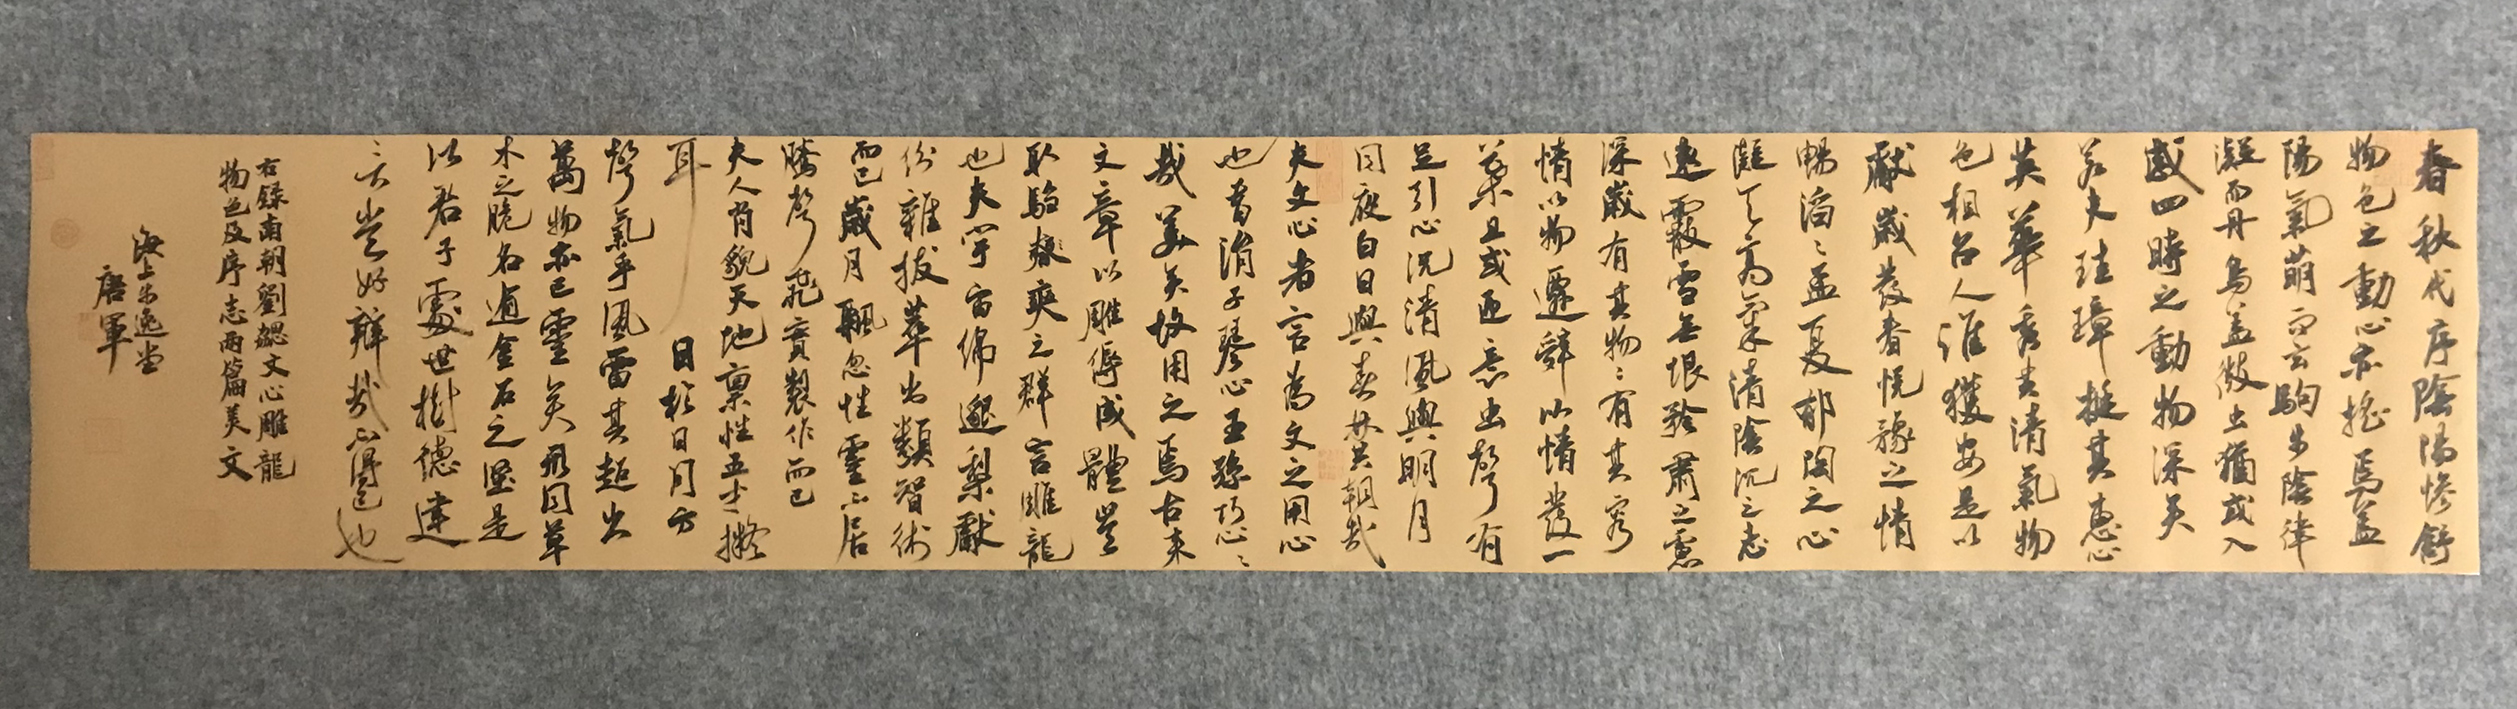 春秋代序陰陽慘舒
物色之動心亦搖焉蓋
陽氣萌而玄駒步陰律
凝而丹鳥羞微虫猶或入
感四時之動物深矣
若夫珪璋挺其惠心
英華秀其清氣物
色相召人誰獲安是以
獻歲發春悅豫之情
暢滔〻孟夏郁陶之心
凝天高氣清陰沉之志
遠霰雪無垠矜肅之慮
深歲有其物〻有其容
情以物遷辭以情發一
葉且或迎意虫聲有
足引心況清風與明月
同夜白日與春林共朝哉
夫文心者言為文之用心
也昔涓子琴心王孫巧心〻
哉美矣故用之焉古來
文章以雕縟成體豈
取騶奭之群言雕龍
也夫宇宙綿邈黎獻
紛雜拔萃出類智術
而已歲月飄忽性靈不居
騰聲飛實製作而已
夫人肖貌天地稟性五才擬
耳目於日月方
聲氣乎風雷其超出
萬物亦已靈矣形同草
木之脆名逾金石之堅是
以君子處世樹德建
言豈好辯哉不得已也
右錄南朝劉勰文心雕龍
物色及序志兩篇美文
海上朱逸堂
唐軍